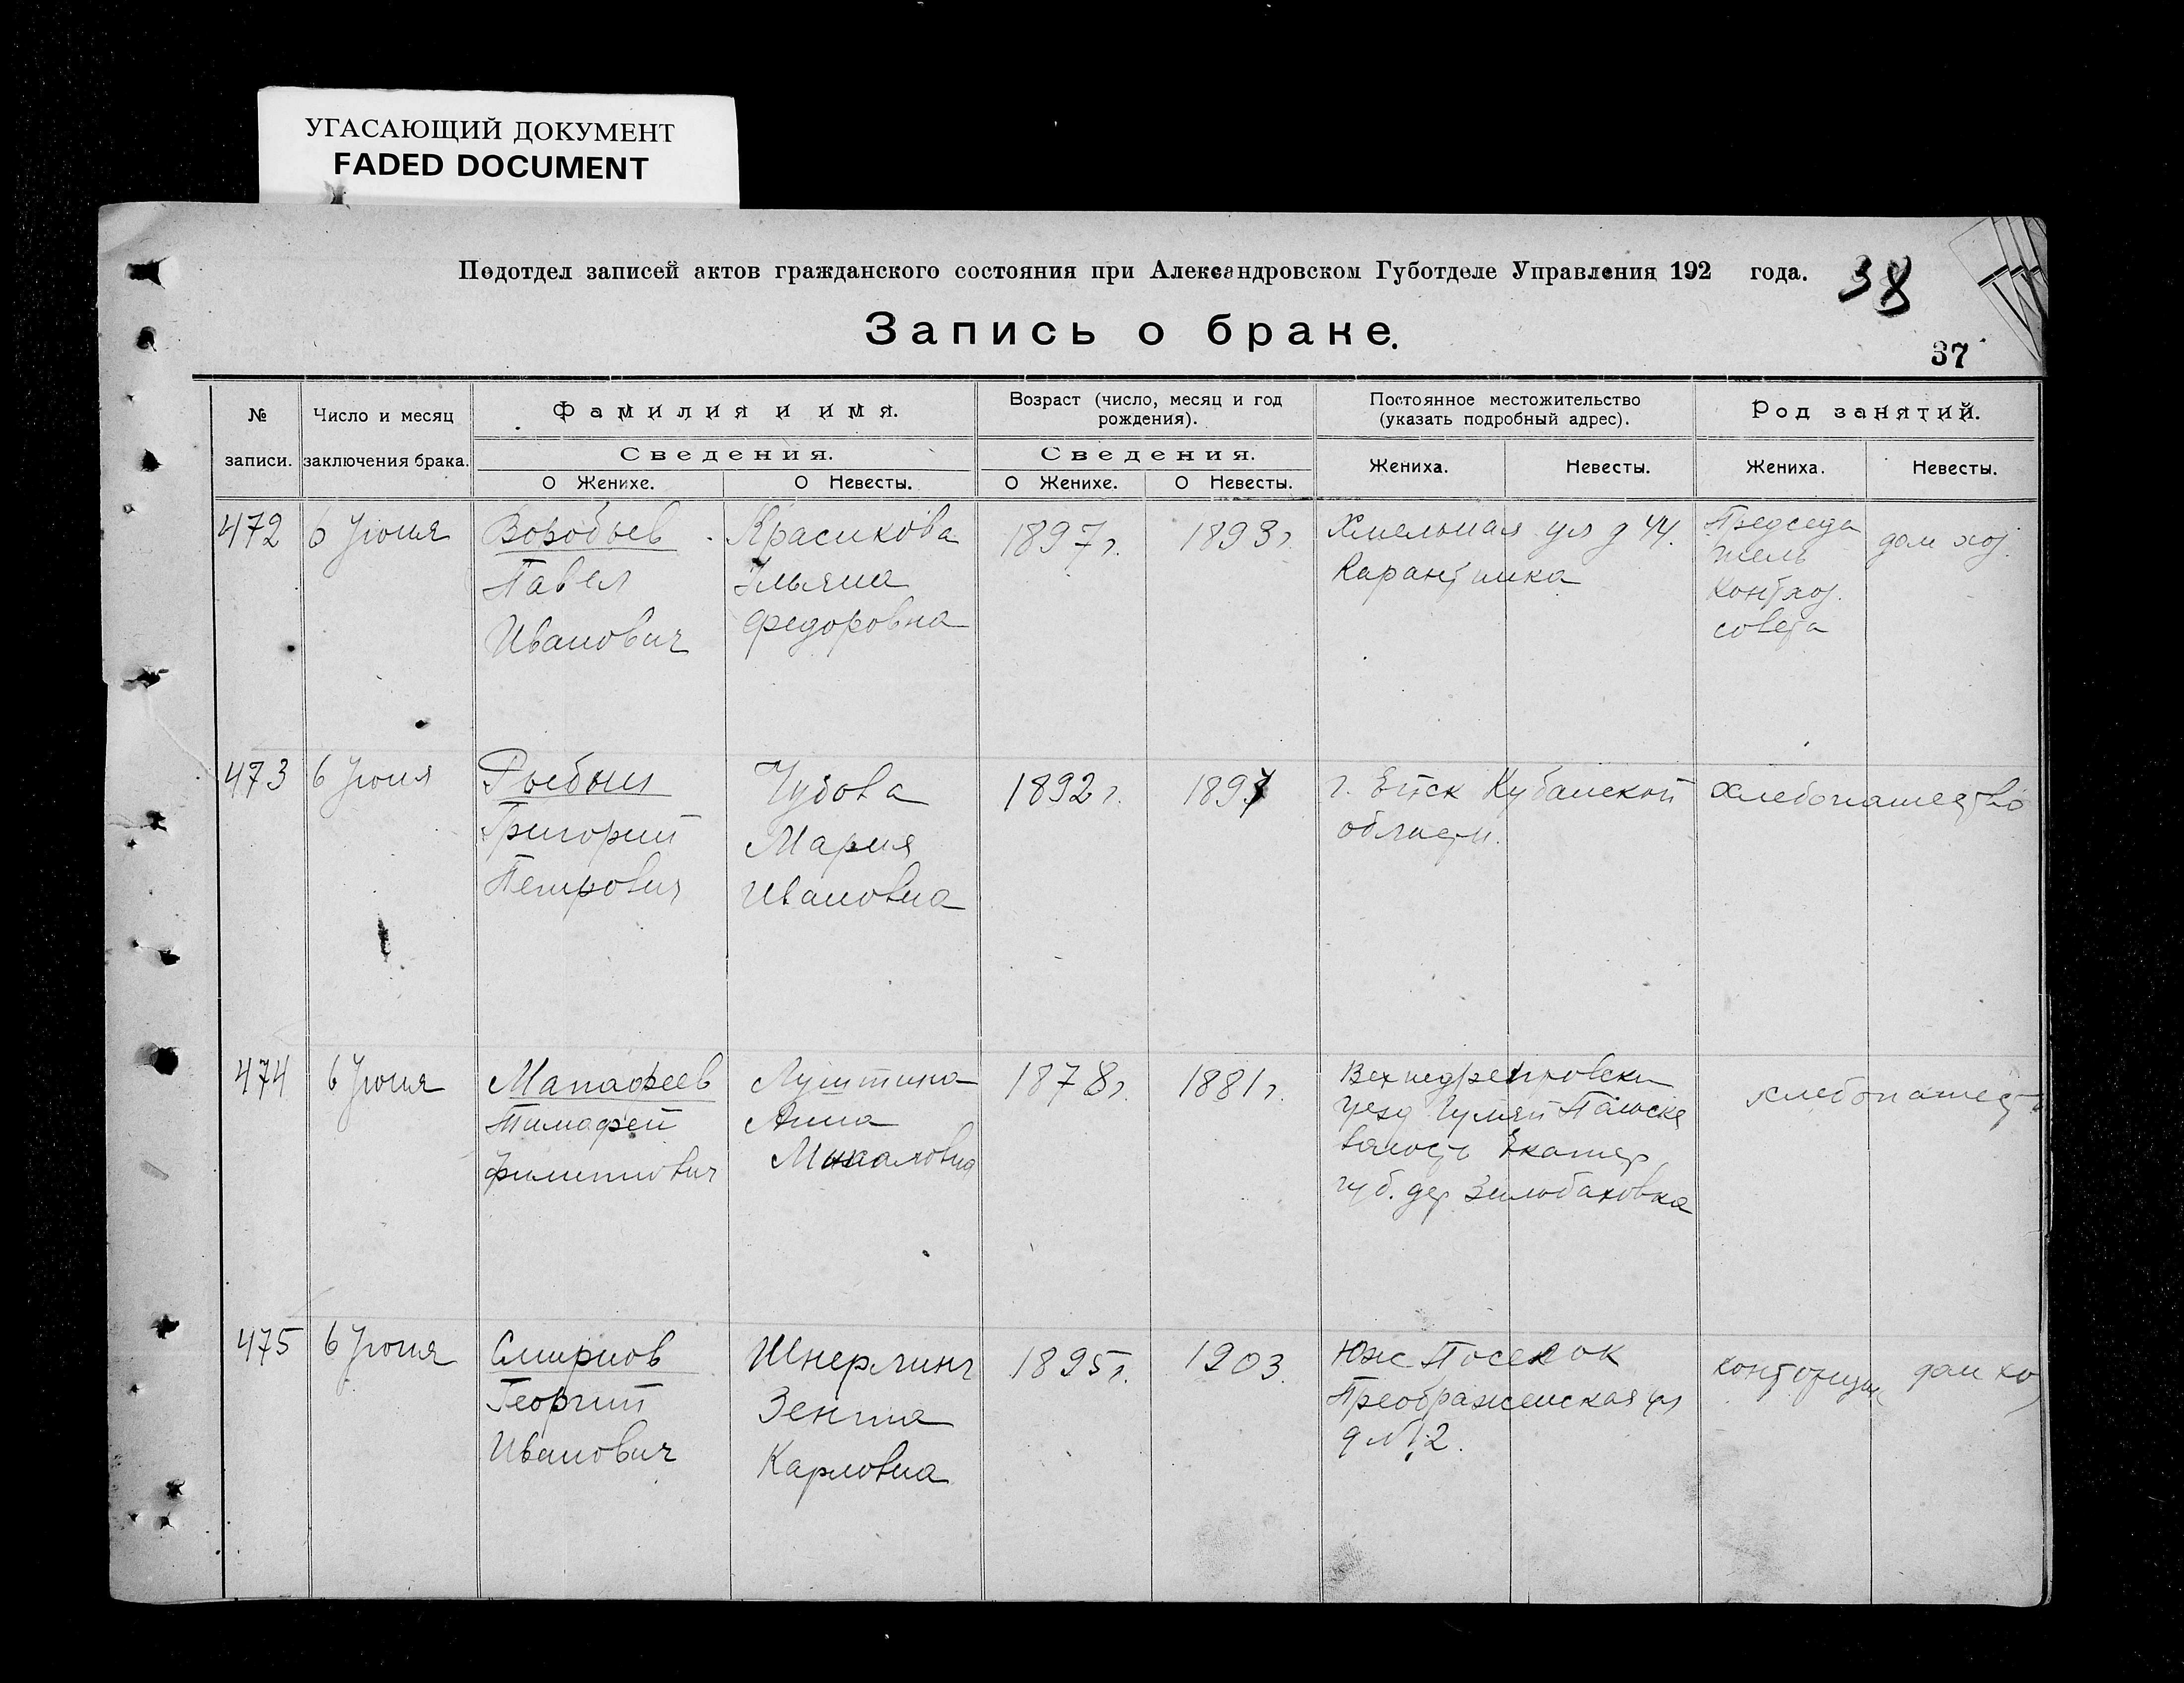 УГАСАЮЩИЙ ДОКУМЕНТ
FADED DOCUMENT
Подотдел записей актов гражданского состояния при Александровском Губотделе Управления 192 года.
38
Запись о браке.
37
№ записи.
Число и месяц заключения брака.
Фамилия и имя.
Сведения.
О Женихе.
О Невесты.
Возраст (число, месяц и год рождения).
Сведения.
О Женихе.
О Невесты.
Постоянное местожительство (указать подробный адрес).
Жениха.
Невесты.
Род занятий.
Жениха.
Невесты.
472
6 Июня
Воробьев
Павел
Иванович
Красикова
Ульяна
Федоровна
1897 г.
1893 г.
Хмельная ул д 44.
Карантинка
Председа
тель
Контхоз.
совета
дом хоз.
473
6 Июня
Григорий
Петрович
Чубова
Мария
Ивановна
1892 г.
г. Ейск Кубанской
области.
хлебопашество
474
6 Июня
Манафеев
Тимофей
Филиппович
Анна
1878 г.
1881 г.
уезд
волость Екатер
губ. дер
хлебопашест
475
6 Июня
Смирнов
Георгий
Иванович
Шперлинг
Зента
Карловна
1895 г.
1903.
Юж Поселок
Преображенская ул
д № 2.
конторщик
дом хоз